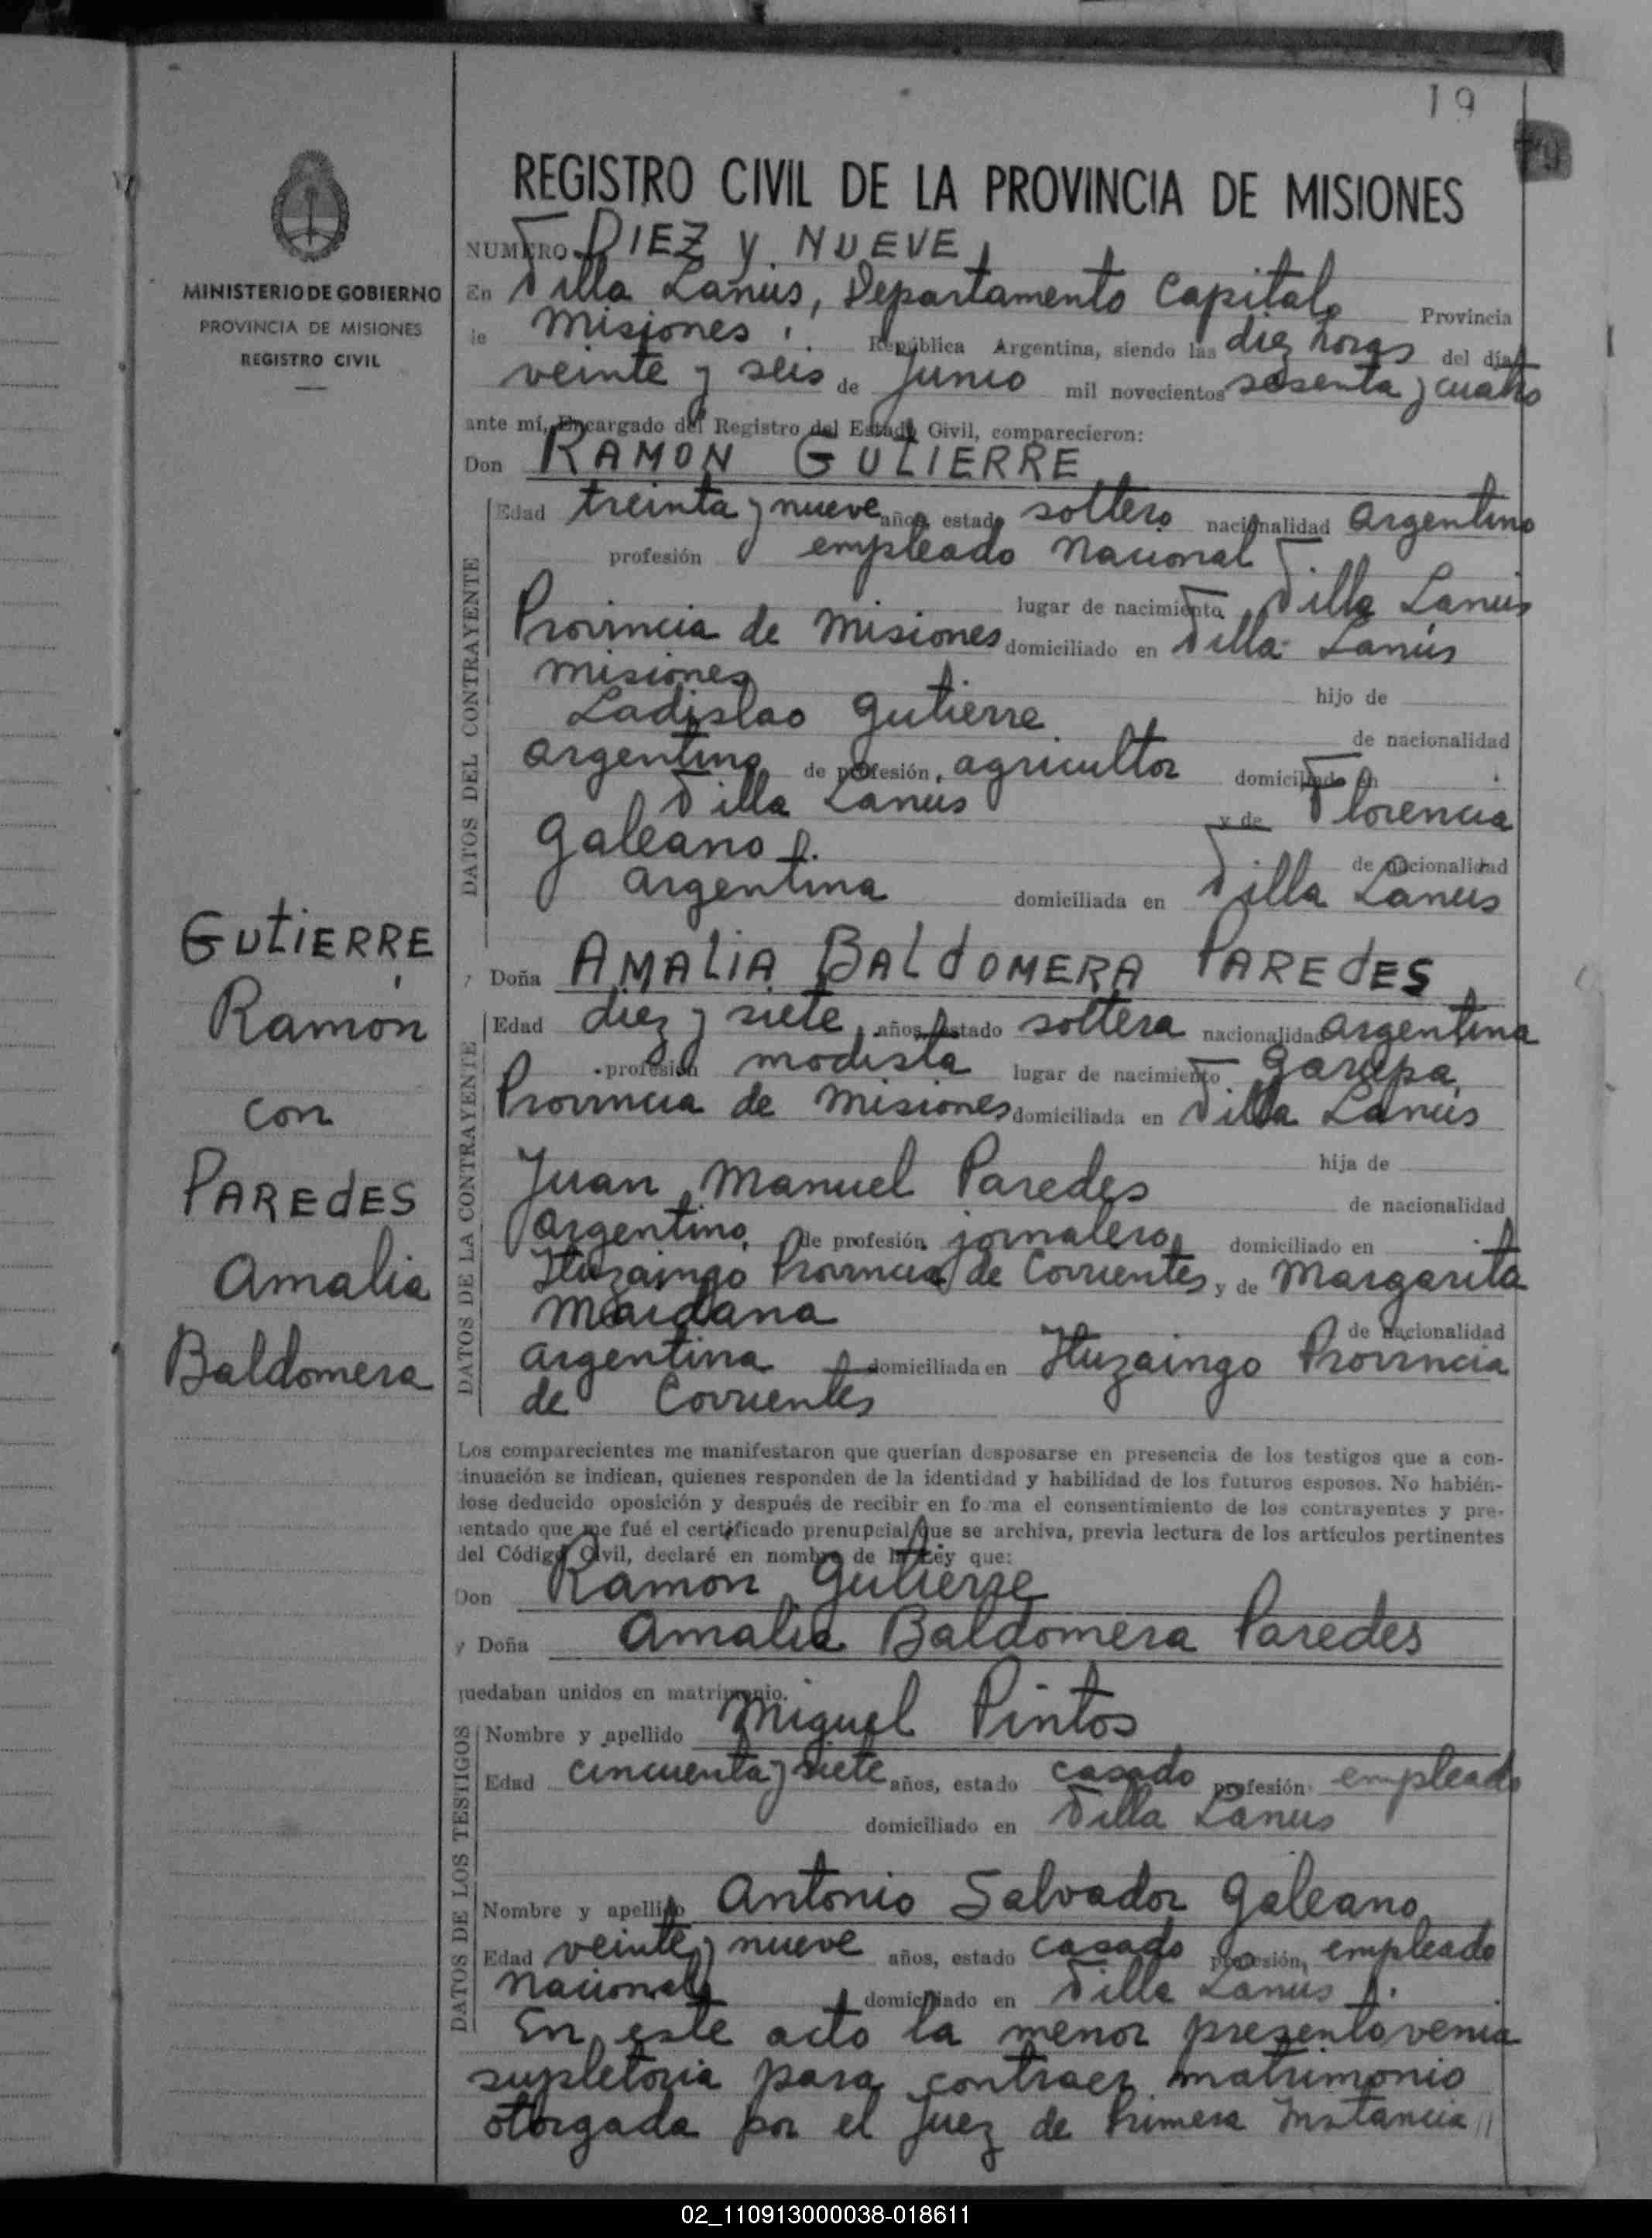 19
REGISTRO CIVIL DE LA PROVINCIA DE MISIONES
MINISTERIO DE GOBIERNO
PROVINCIA DE MISIONES
REGISTRO CIVIL
NUMERO DIEZ y NUEVE
En Villa Lanús, Departamento Capital Provincia
de Misiones República Argentina, siendo las diez horas del día
veinte y seis de Junio mil novecientos sesenta y cuatro
ante mí, Encargado del Registro del Estado Civil, comparecieron:
Don RAMON GUTIERRE
DATOS DEL CONTRAYENTE
Edad treinta y nueve años, estado soltero nacionalidad argentino
profesión empleado Nacional
lugar de nacimiento Villa Lanús
Provincia de Misiones domiciliado en Villa Lanús
Misiones hijo de
Ladislao Gutierre de nacionalidad
argentino de profesión agricultor domiciliado en
Villa Lanus y de Florencia
Galeano de nacionalidad
argentina domiciliada en Villa Lanus
GUTIERRE
Ramón
con
PAREDES
Amalia
Baldomera
y Doña AMALIA BALDOMERA PAREDES
DATOS DE LA CONTRAYENTE
Edad diez y siete años, estado soltera nacionalidad argentina
profesión modista lugar de nacimiento Garupa,
Provincia de Misiones domiciliada en Villa Lanús
hija de
Juan Manuel Paredes de nacionalidad
argentino, de profesión jornalero domiciliado en
Ituzaingo Provincia de Corrientes, y de Margarita
Maidana de nacionalidad
argentina domiciliada en Ituzaingo Provincia
de Corrientes
Los comparecientes me manifestaron que querían desposarse en presencia de los testigos que a con-
tinuación se indican, quienes responden de la identidad y habilidad de los futuros esposos. No habién-
dose deducido oposición y después de recibir en forma el consentimiento de los contrayentes y pre-
sentado que me fué el certificado prenupcial que se archiva, previa lectura de los artículos pertinentes
del Código Civil, declaré en nombre de la Ley que:
Don Ramon Gutierre
y Doña Amalia Baldomera Paredes
quedaban unidos en matrimonio.
DATOS DE LOS TESTIGOS
Nombre y apellido Miguel Pintos
Edad cincuenta y siete años, estado casado profesión empleado
domiciliado en Villa Lanus
Nombre y apellido Antonio Salvador Galeano
Edad veinte y nueve años, estado casado profesión, empleado
Nacional domiciliado en Villa Lanus
En este acto la menor presento venia
supletoria para contraer matrimonio
otorgada por el Juez de Primera Instancia //
02_110913000038-018611